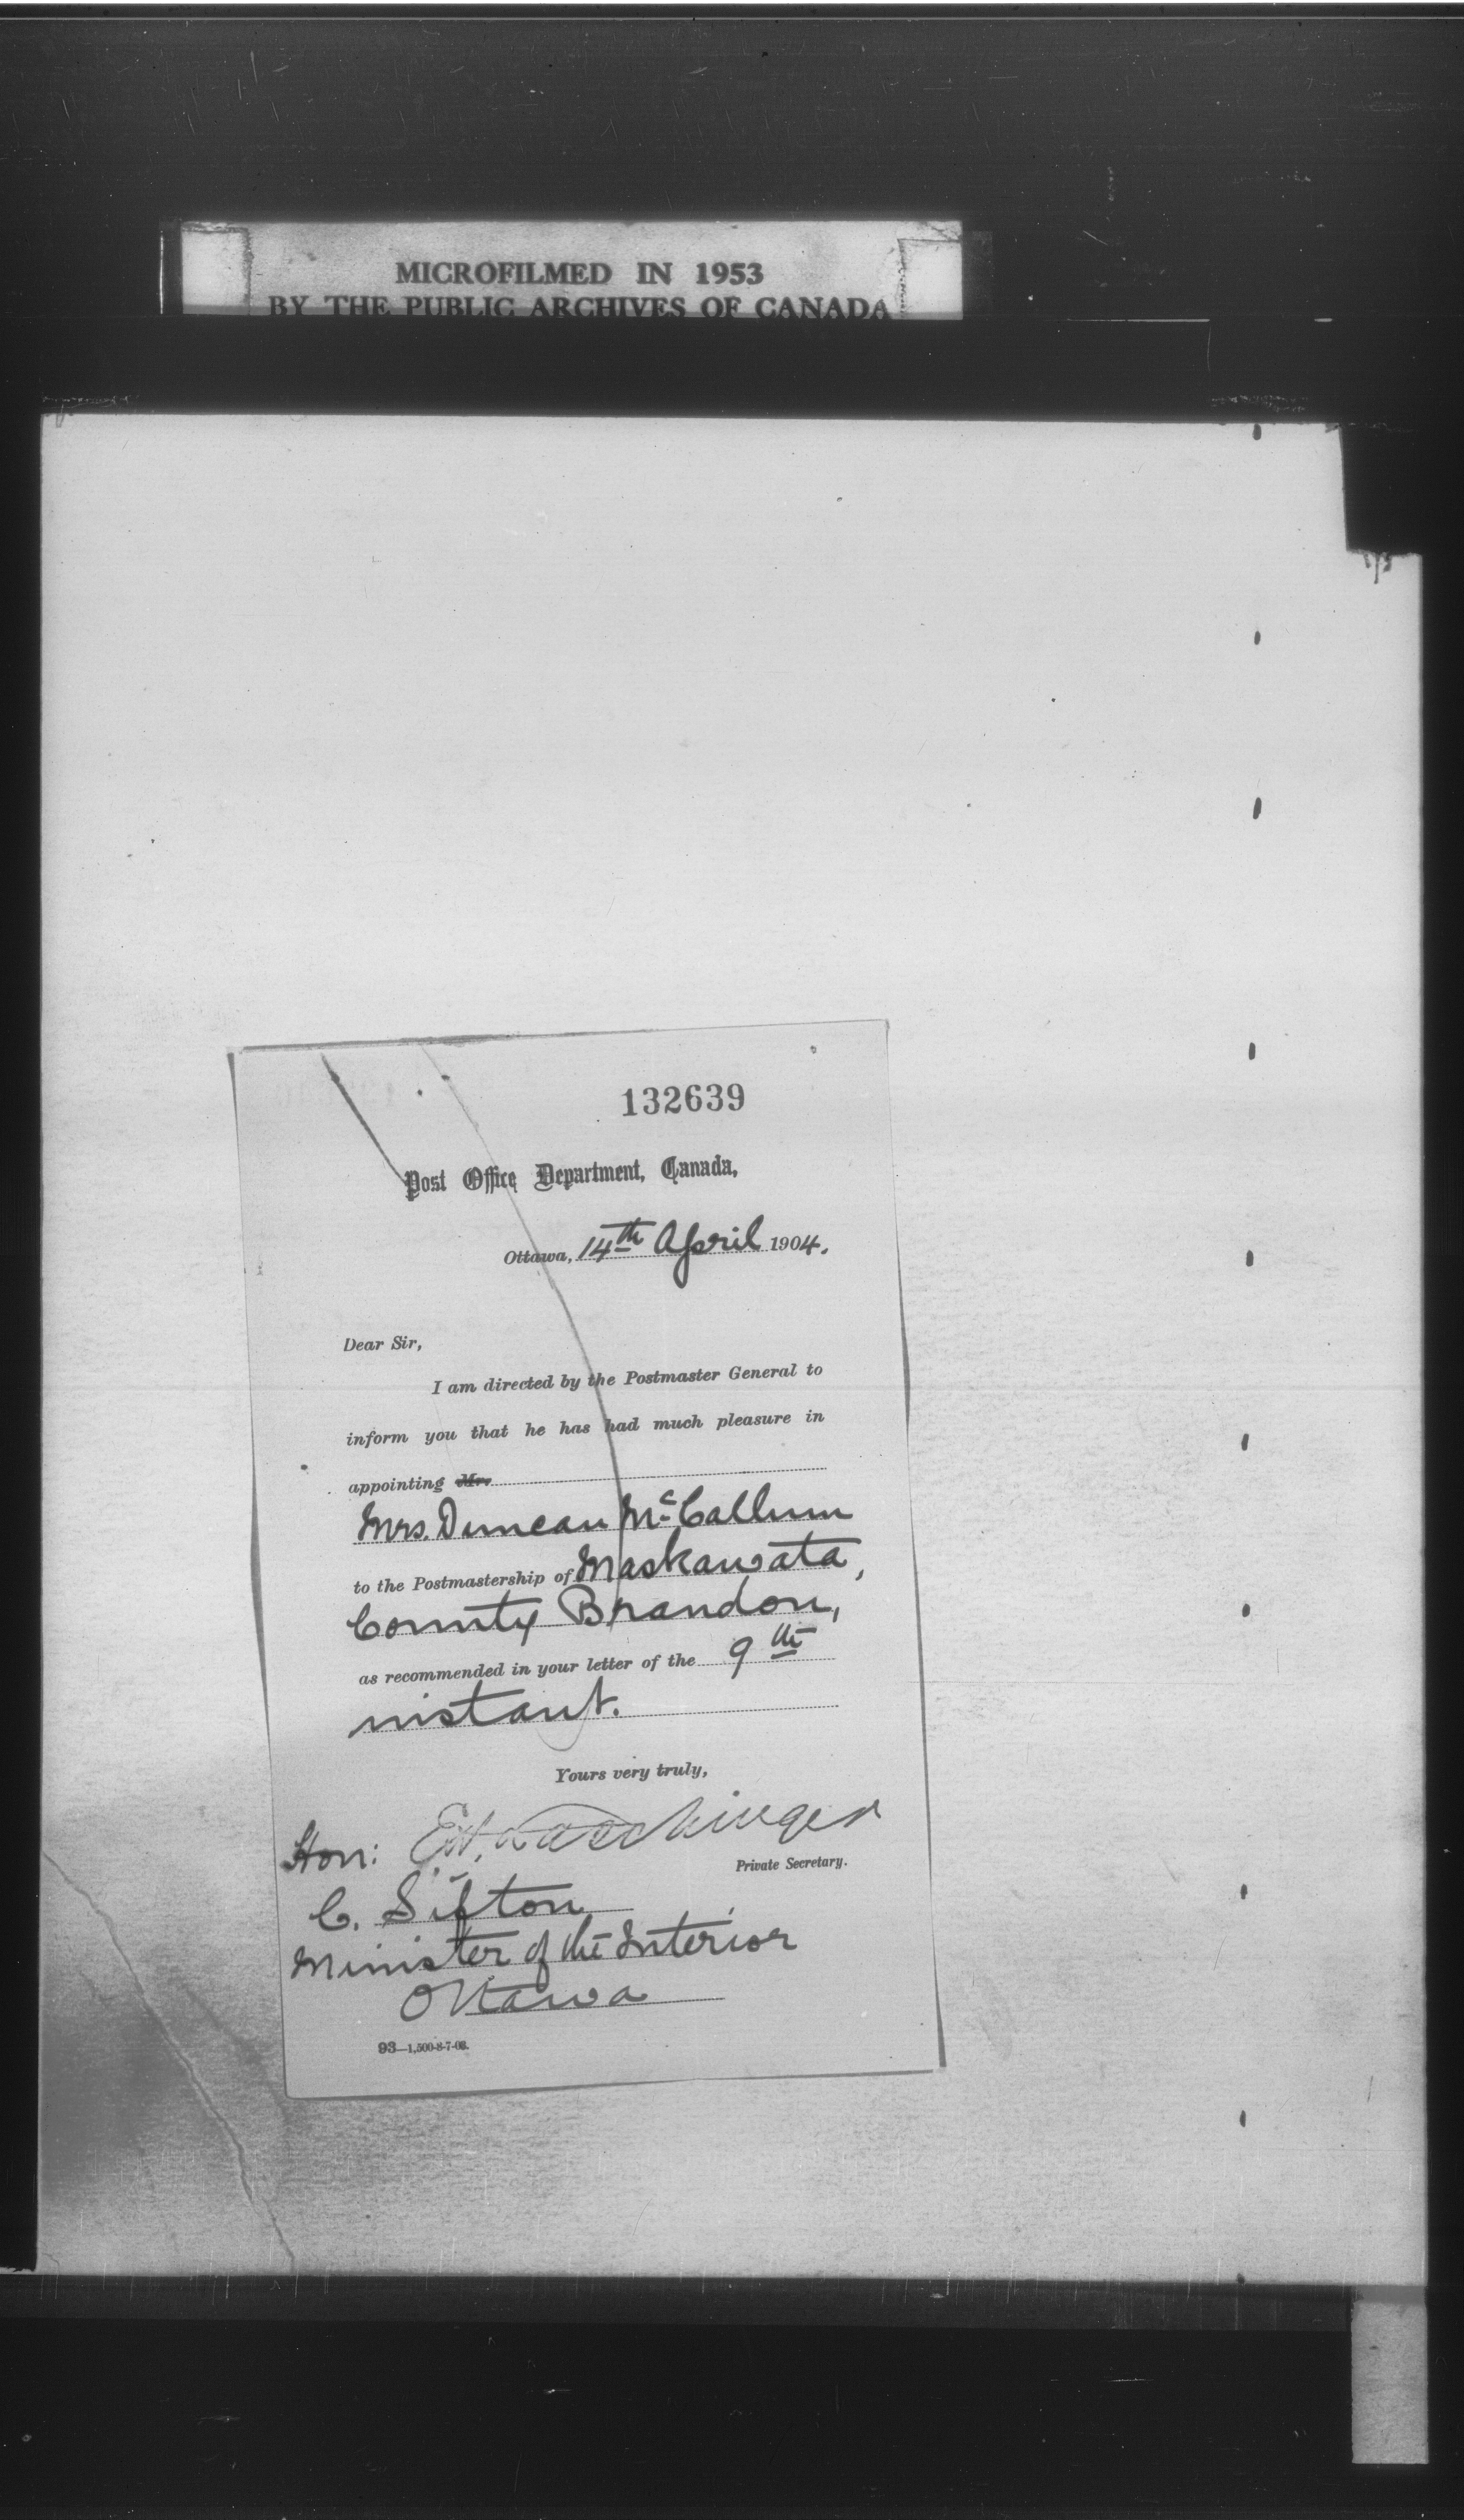 MICROFILMED IN 1953
BY THE PUBLIC ARCHIVES OF CANADA
132639
Post Office Department, Canada,
Ottawa, 14th April 1904.
Dear Sir,
I am directed by the Postmaster General to
inform you that he has had much pleasure in
appointing Mr.
Mrs. Duncan McCallum
to the Postmastership of Maskawata,
County Brandon,
as recommended in your letter of the 9th
instant.
Yours very truly,
Hon:
Private Secretary.
C. Sifton
Minister of the Interior
Ottawa
93—1,500-8-7-03.